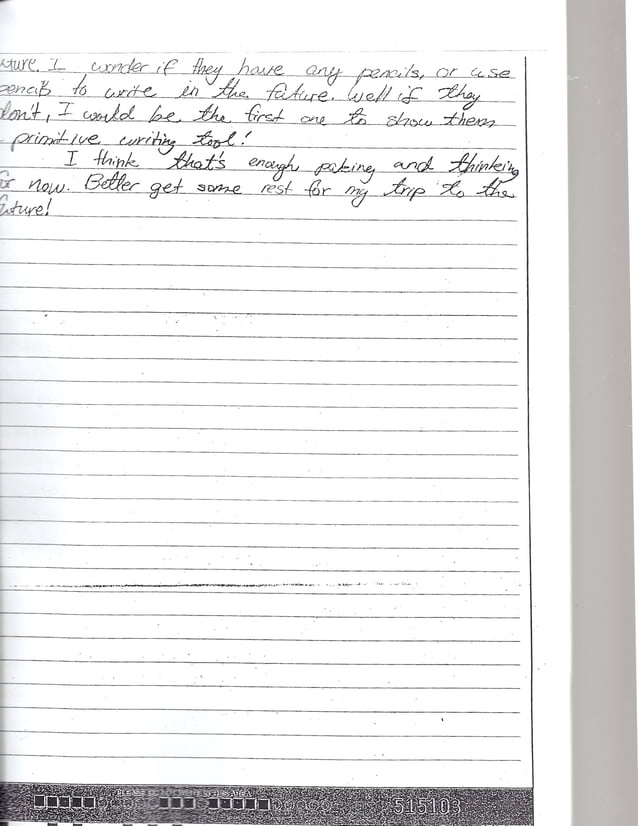 uture. I wonder if they have any pencils, or use
pencils to write in the future. Well if they
don't, I would be the first one to show them
a primitive writing tool!
I think that's enough paking and thinking
for now. Better get some rest for my trip to the
future!
PLEASE DO NOT WRITE IN THIS AREA
515103